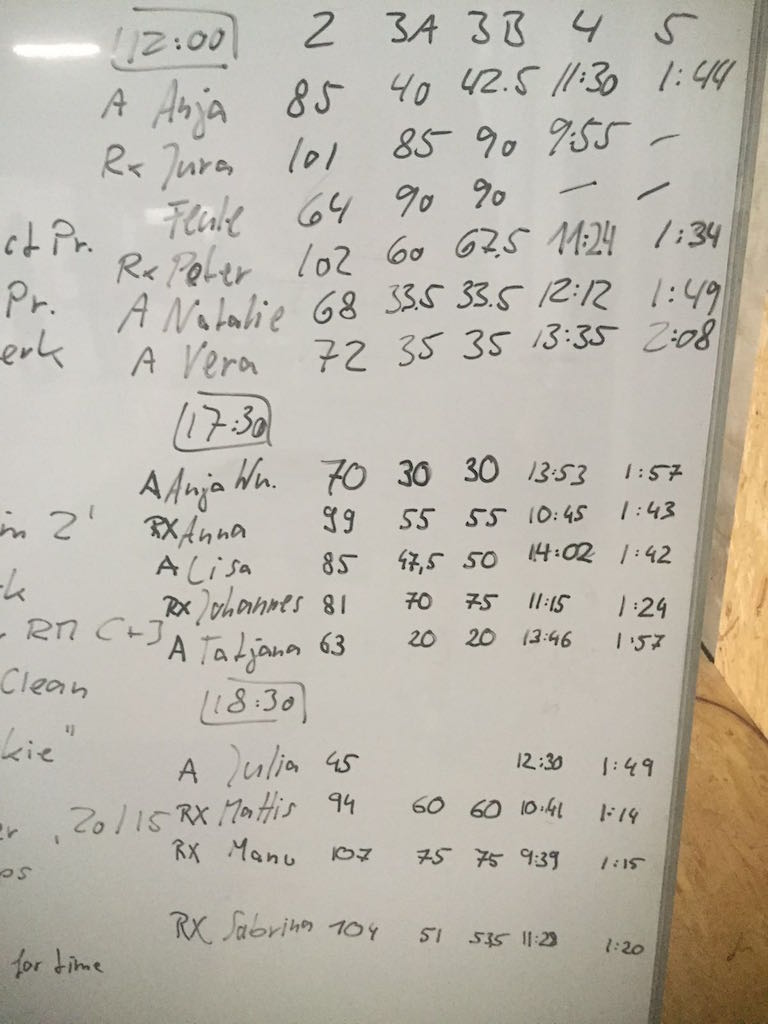 12:00 2 3A 3B 4 5
A Anja 85 40 42.5 11:30 1:44
Rx Jura 101 85 90 9:55 —
64 90 90 — —
ct Pr.
Rx Peter 102 60 67.5 11:24 1:34
Pr. A Natalie 68 33.5 33.5 12:12 1:49
erk A Vera 72 35 35 13:35 2:08
17:30
A Anja Wn. 70 30 30 13:53 1:57
in 2' RX Anna 99 55 55 10:45 1:43
A Lisa 85 47,5 50 14:02 1:42
k RX Johannes 81 70 75 11:15 1:24
RM C+J A Tatjana 63 20 20 13:46 1:57
Clean 18:30
kie"
A Julia 45 12:30 1:49
er , 20/15 RX Mattis 94 60 60 10:41 1:14
os RX Manu 107 75 75 9:39 1:15
RX Sabrina 104 51 53.5 1:20
for time